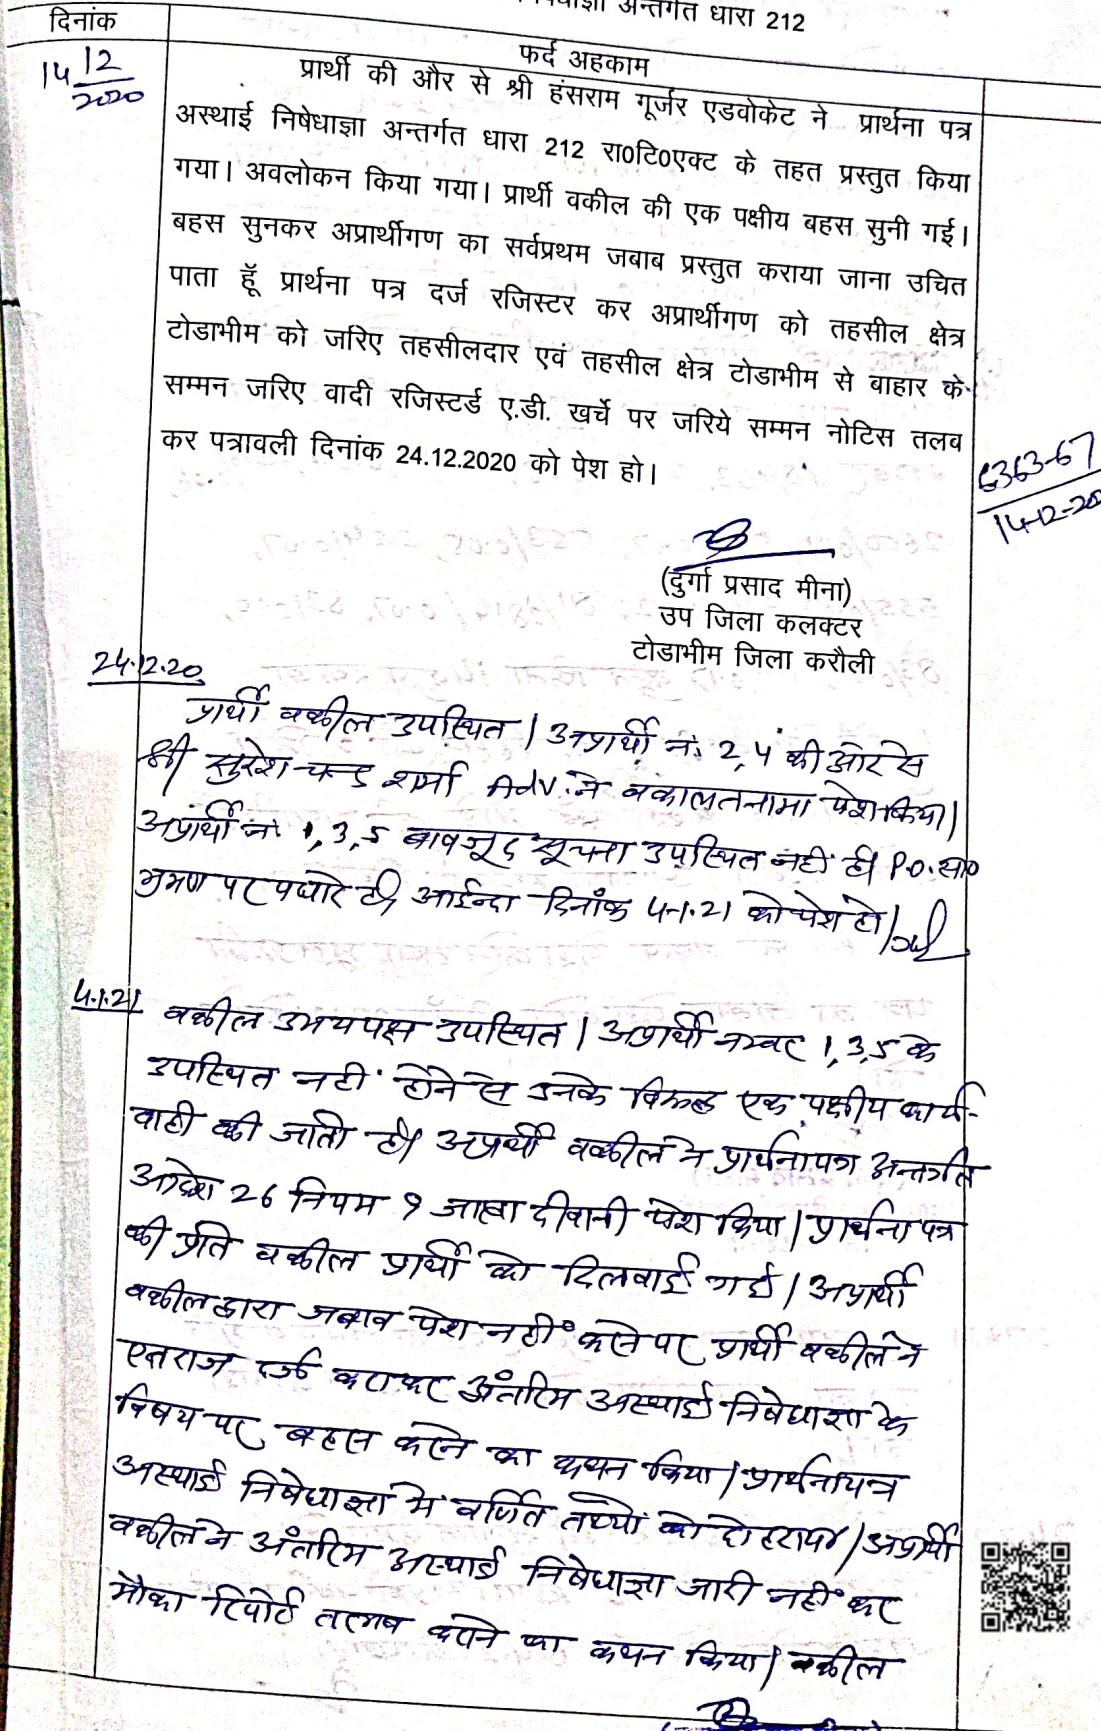 अन्तर्गत धारा 212
दिनांक
फर्द अहकाम
14 12/2020
प्रार्थी की और से श्री हंसराम गूर्जर एडवोकेट ने प्रार्थना पत्र
अस्थाई निषेधाज्ञा अन्तर्गत धारा 212 रा0टि0एक्ट के तहत प्रस्तुत किया
गया। अवलोकन किया गया। प्रार्थी वकील की एक पक्षीय बहस सुनी गई।
बहस सुनकर अप्रार्थीगण का सर्वप्रथम जबाब प्रस्तुत कराया जाना उचित
पाता हूॅ प्रार्थना पत्र दर्ज रजिस्टर कर अप्रार्थीगण को तहसील क्षेत्र
टोडाभीम को जरिए तहसीलदार एवं तहसील क्षेत्र टोडाभीम से बाहार के
सम्मन जरिए वादी रजिस्टर्ड ए.डी. खर्चे पर जरिये सम्मन नोटिस तलब
कर पत्रावली दिनांक 24.12.2020 को पेश हो।
6363-67
14-12-20
(दुर्गा प्रसाद मीना)
उप जिला कलक्टर
टोडाभीम जिला करौली
24.12.20
प्रार्थी वकील उपस्थित। अप्रार्थी नं. 2,4 की ओर से
श्री सुरेश चन्द शर्मा Adv. ने वकालतनामा पेश किया।
अप्रार्थी नं. 1,3,5 बावजूद सूचना उपस्थित नही है। P.O. सा0
भ्रमण पर पधारे है। आईन्दा दिनाँक 4-1-21 को पेश हो।
4.1.21
वकील उभयपक्ष उपस्थित। अप्रार्थी नम्बर 1,3,5 के
उपस्थित नही होने से उनके विरूद्ध एक पक्षीय कार्य-
वाही की जाती है। अप्रार्थी वकील ने प्रार्थनापत्र अन्तर्गत
आदेश 26 नियम 9 जाब्ता दीवानी पेश किया। प्रार्थना पत्र
की प्रति वकील प्रार्थी को दिलवाई गई। अप्रार्थी
वकील द्वारा जबाव पेश नही करने पर प्रार्थी वकील ने
एतराज दर्ज कराकर अंतरिम अस्थाई निषेधाज्ञा के
विषय पर बहस करने का कथन किया। प्रार्थनापत्र
अस्थाई निषेधाज्ञा में वर्णित तथ्यो को दोहराया। अप्रार्थी
वकील ने अंतरिम अस्थाई निषेधाज्ञा जारी नही कर
मौका रिपोर्ट तलब करने का कथन किया। वकील